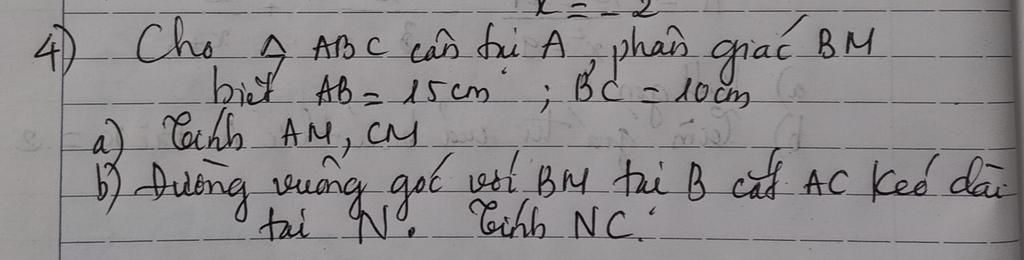 x = -2
4) Cho Δ ABC cân tại A, phân giác BM
biết AB = 15cm ; BC = 10cm
a) Tính AM, CM
b) Đường vuông góc với BM tại B cắt AC kéo dài
tại N. Tính NC.